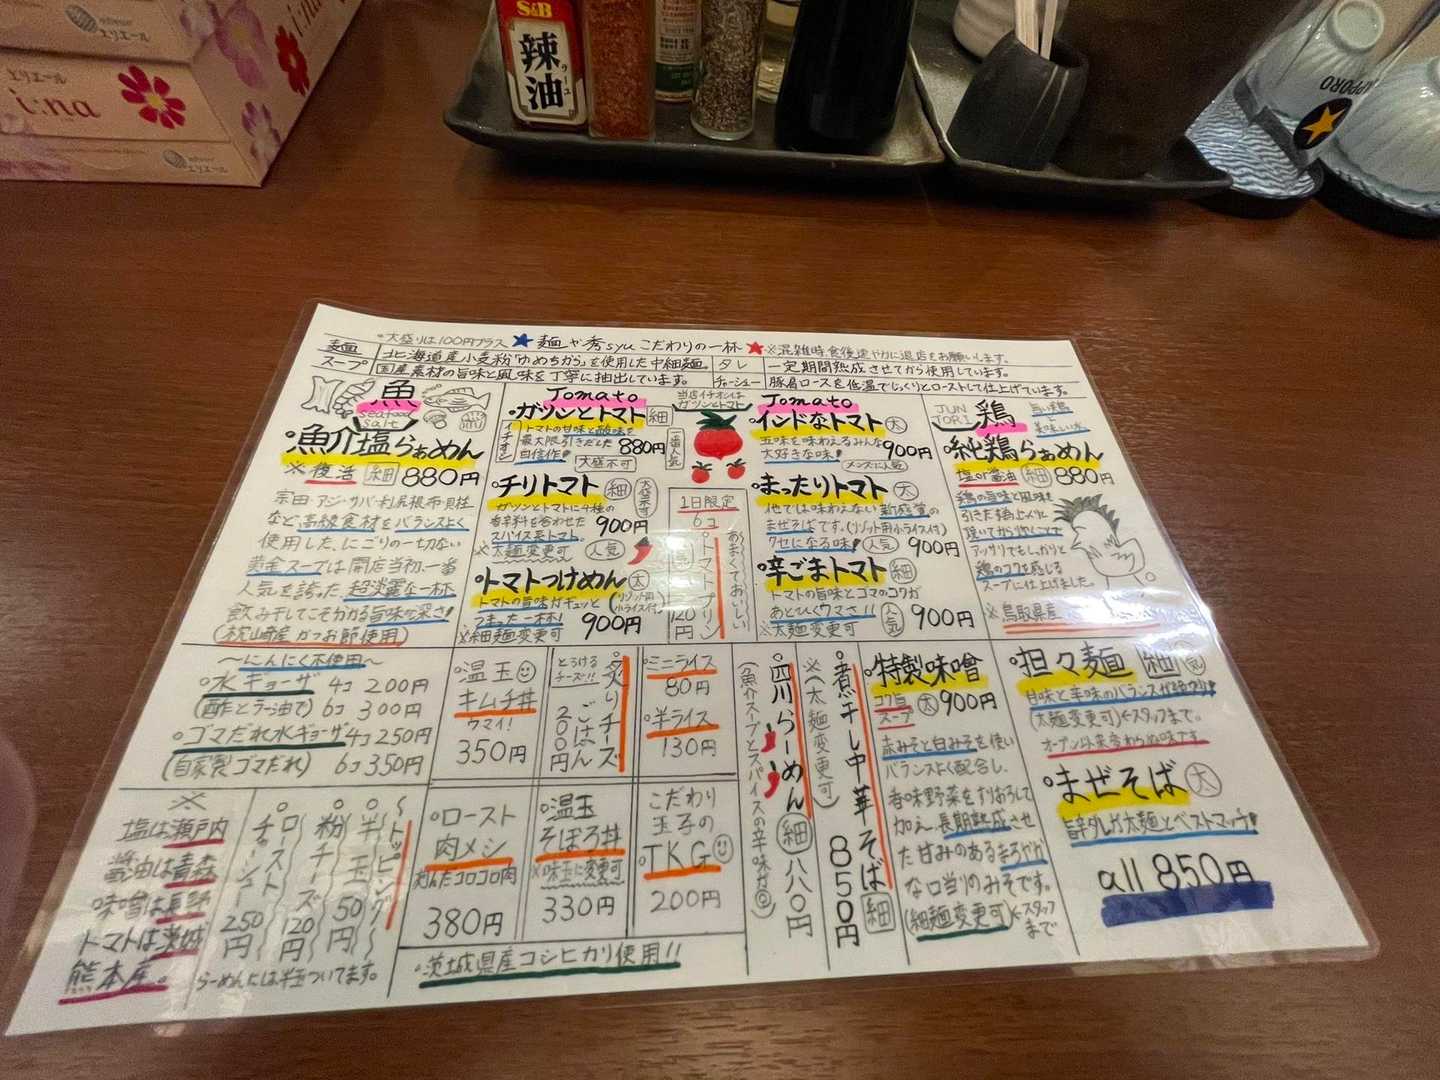 エリエール
エリエール
i:na
i:na
エリエール
S&B
辣油
ラーユ
SAPPORO
*大盛りは100円プラス ★麺や秀syuこだわりの一杯★ ※混雑時食後速やかに退店をお願いします。
麺 北海道産小麦粉「ゆめちから」を使用した中細麺。
スープ 国産素材の旨味と風味を丁寧に抽出しています。
タレ 一定期間熟成させてから使用しています。
チャーシュー 豚肩ロースを低温でじっくりとローストして仕上げています。
魚
seafood
salt
魚介塩らぁめん
※復活 細 880円
宗田・アジ・サバ・利尻根布・貝柱
など、高級食材をバランスよく
使用した、にごりの一切ない
黄金スープは開店当初一番
人気を誇った、超淡麗な一杯
飲み干してこそわかる旨味の深さ!
(枕崎産かつお節使用)
Tomato
ガツンとトマト 細
イチオシ
トマトの甘味と酸味を
最大限引きだした
自信作! 880円
大盛不可
当店イチオシは
ガツンとトマト
一番人気
チリトマト 細
大盛不可
ガツンとトマトに4種の
香辛料を合わせた
スパイス系トマト。 900円
※太麺変更可 人気
トマトつけめん 太
トマトの旨味がギュッと
つまった一杯! (リゾット用小ライス付)
※細麺変更可 900円
1日限定
6コ
トマトプリン
あまくておいしい
120円
Tomato
インドなトマト 太
五味を味わえるみんな
大好きな味! 900円
メンズに人気
まったりトマト 太
他では味わえない新感覚の
まぜそばです。(リゾット用小ライス付)
クセになる味! 人気 900円
辛ごまトマト 細
トマトの旨味とゴマのコクが
あとひくウマさ!! 人気 900円
※太麺変更可
JUN
TORI
鶏
純鶏らぁめん
塩or醤油 細 880円
鶏の旨味と風味を
アッサリでもしっかりと
鶏のコクを感じる
スープに仕上げました。
※鳥取県産
〜にんにく不使用〜
水ギョーザ 4コ 200円
(酢とラー油で) 6コ 300円
ゴマだれ水ギョーザ 4コ 250円
(自家製ゴマだれ) 6コ 350円
温玉
キムチ丼
ウマイ!
350円
とろけるチーズ!!
炙りチーズ
ごはん
200円
ミニライス
80円
半ライス
130円
四川らーめん 細 880円
(魚介スープとスパイスの辛味が◎)
煮干し中華そば 細 850円
※(太麺変更可)
特製味噌
コク旨
スープ 太 900円
赤みそと白みそを使い
バランスよく配合し、
香味野菜をすりおろして
加え、長期熟成させ
た甘みのあるまろやか
な口当りのみそです。
(細麺変更可)←スタッフまで
担々麺 細
甘味と辛味のバランスが絶妙!!
(太麺変更可)←スタッフまで。
オープン以来変わらぬ味です
まぜそば 太
旨辛ダレが太麺とベストマッチ!
all 850円
※
塩は瀬戸内
醤油は青森
味噌は長野
トマトは茨城
熊本産。
〜トッピング〜
半玉 50円
粉チーズ 120円
ローストチャーシュー 250円
らーめんには半玉ついてます。
ロースト
肉メシ
380円
温玉
そぼろ丼
※味玉に変更可
330円
こだわり
玉子の
TKG
200円
茨城県産コシヒカリ使用!!